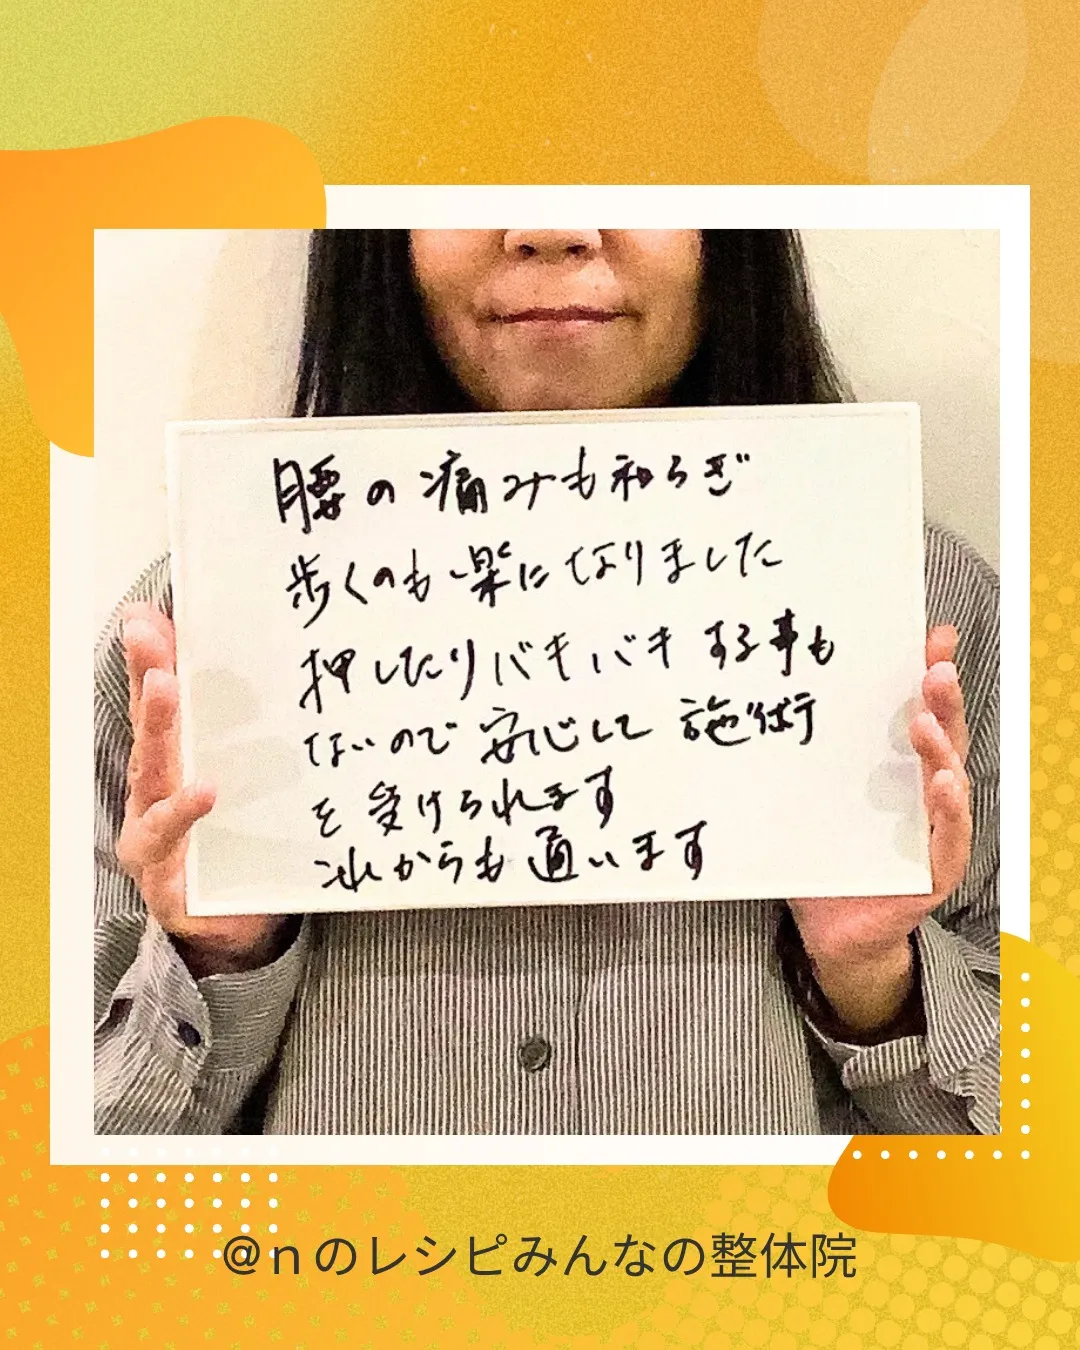 腰の痛みも和らぎ
歩くのも楽になりました
押したりバキバキする事も
ないので安心して施術
を受けられます
これからも通います
@nのレシピみんなの整体院